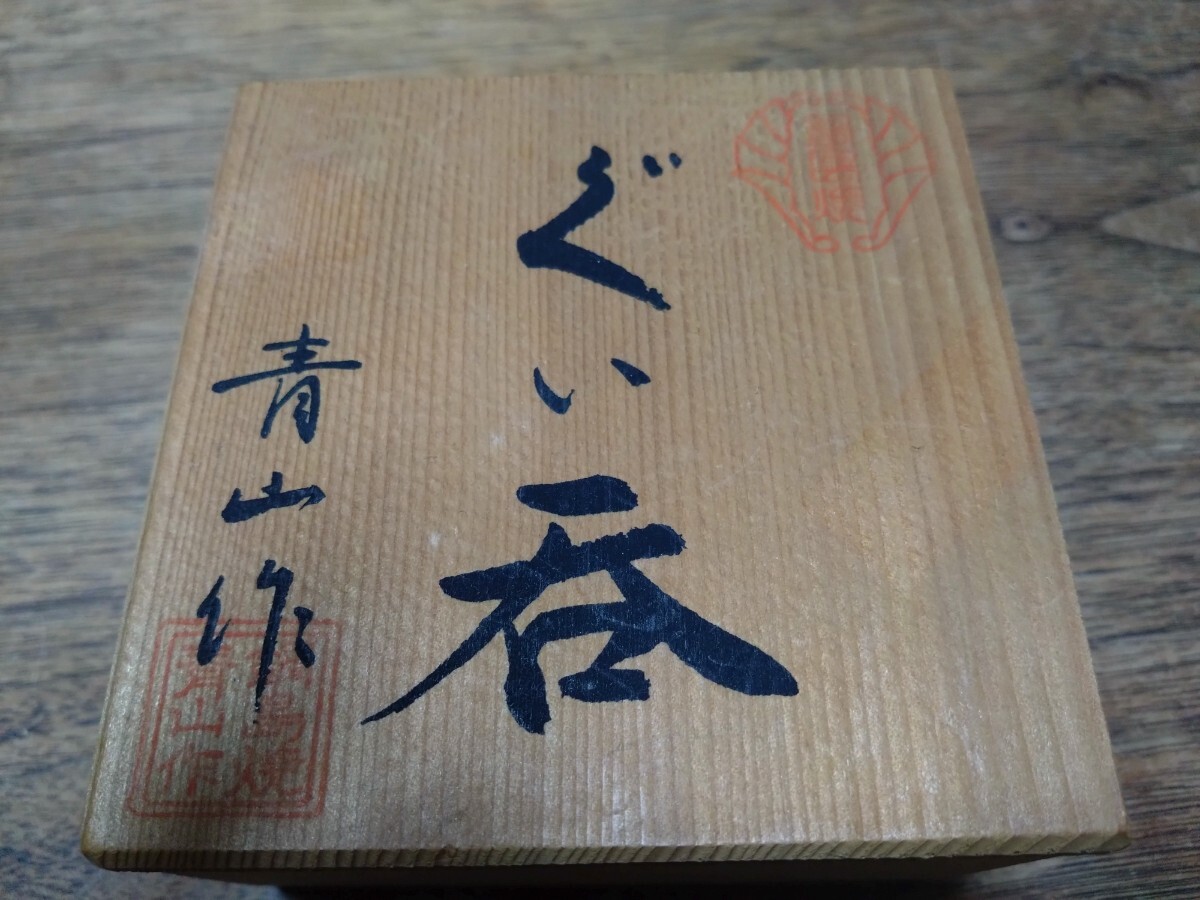 ぐい呑
青山作
青山作